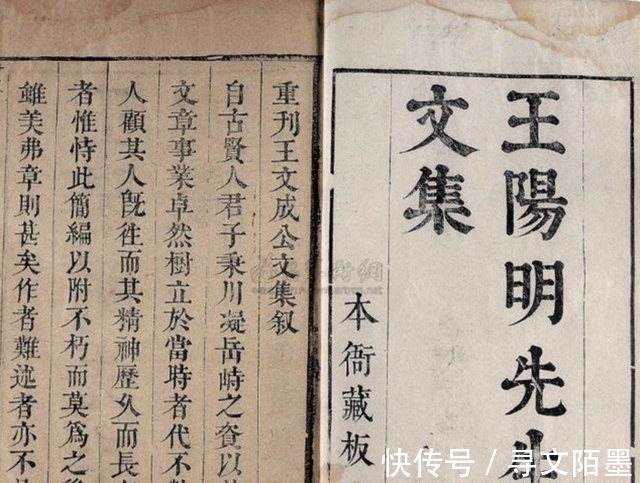 王陽明先生
文集
本衙藏板
重刊王文成公文集叙
自古賢人君子秉川凝岳峙之資以
文章事業卓然樹立於當時者代不
人顧其人旣徃而其精神歷久而長
者惟恃此簡編以附不朽而莫爲之後
雖美弗章則甚矣作者難述者亦不
快传号／寻文陌墨